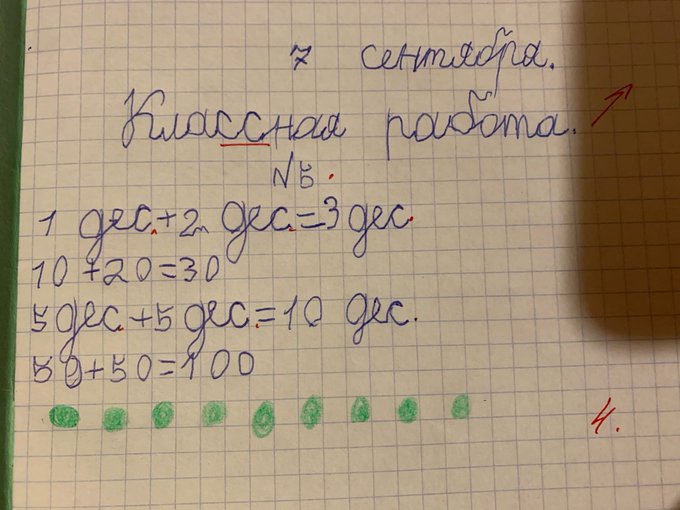 7 сентября.
Классная работа.
№5.
1 дес.+2 дес.=3 дес.
10+20=30
5 дес.+5 дес.=10 дес.
50+50=100
4.